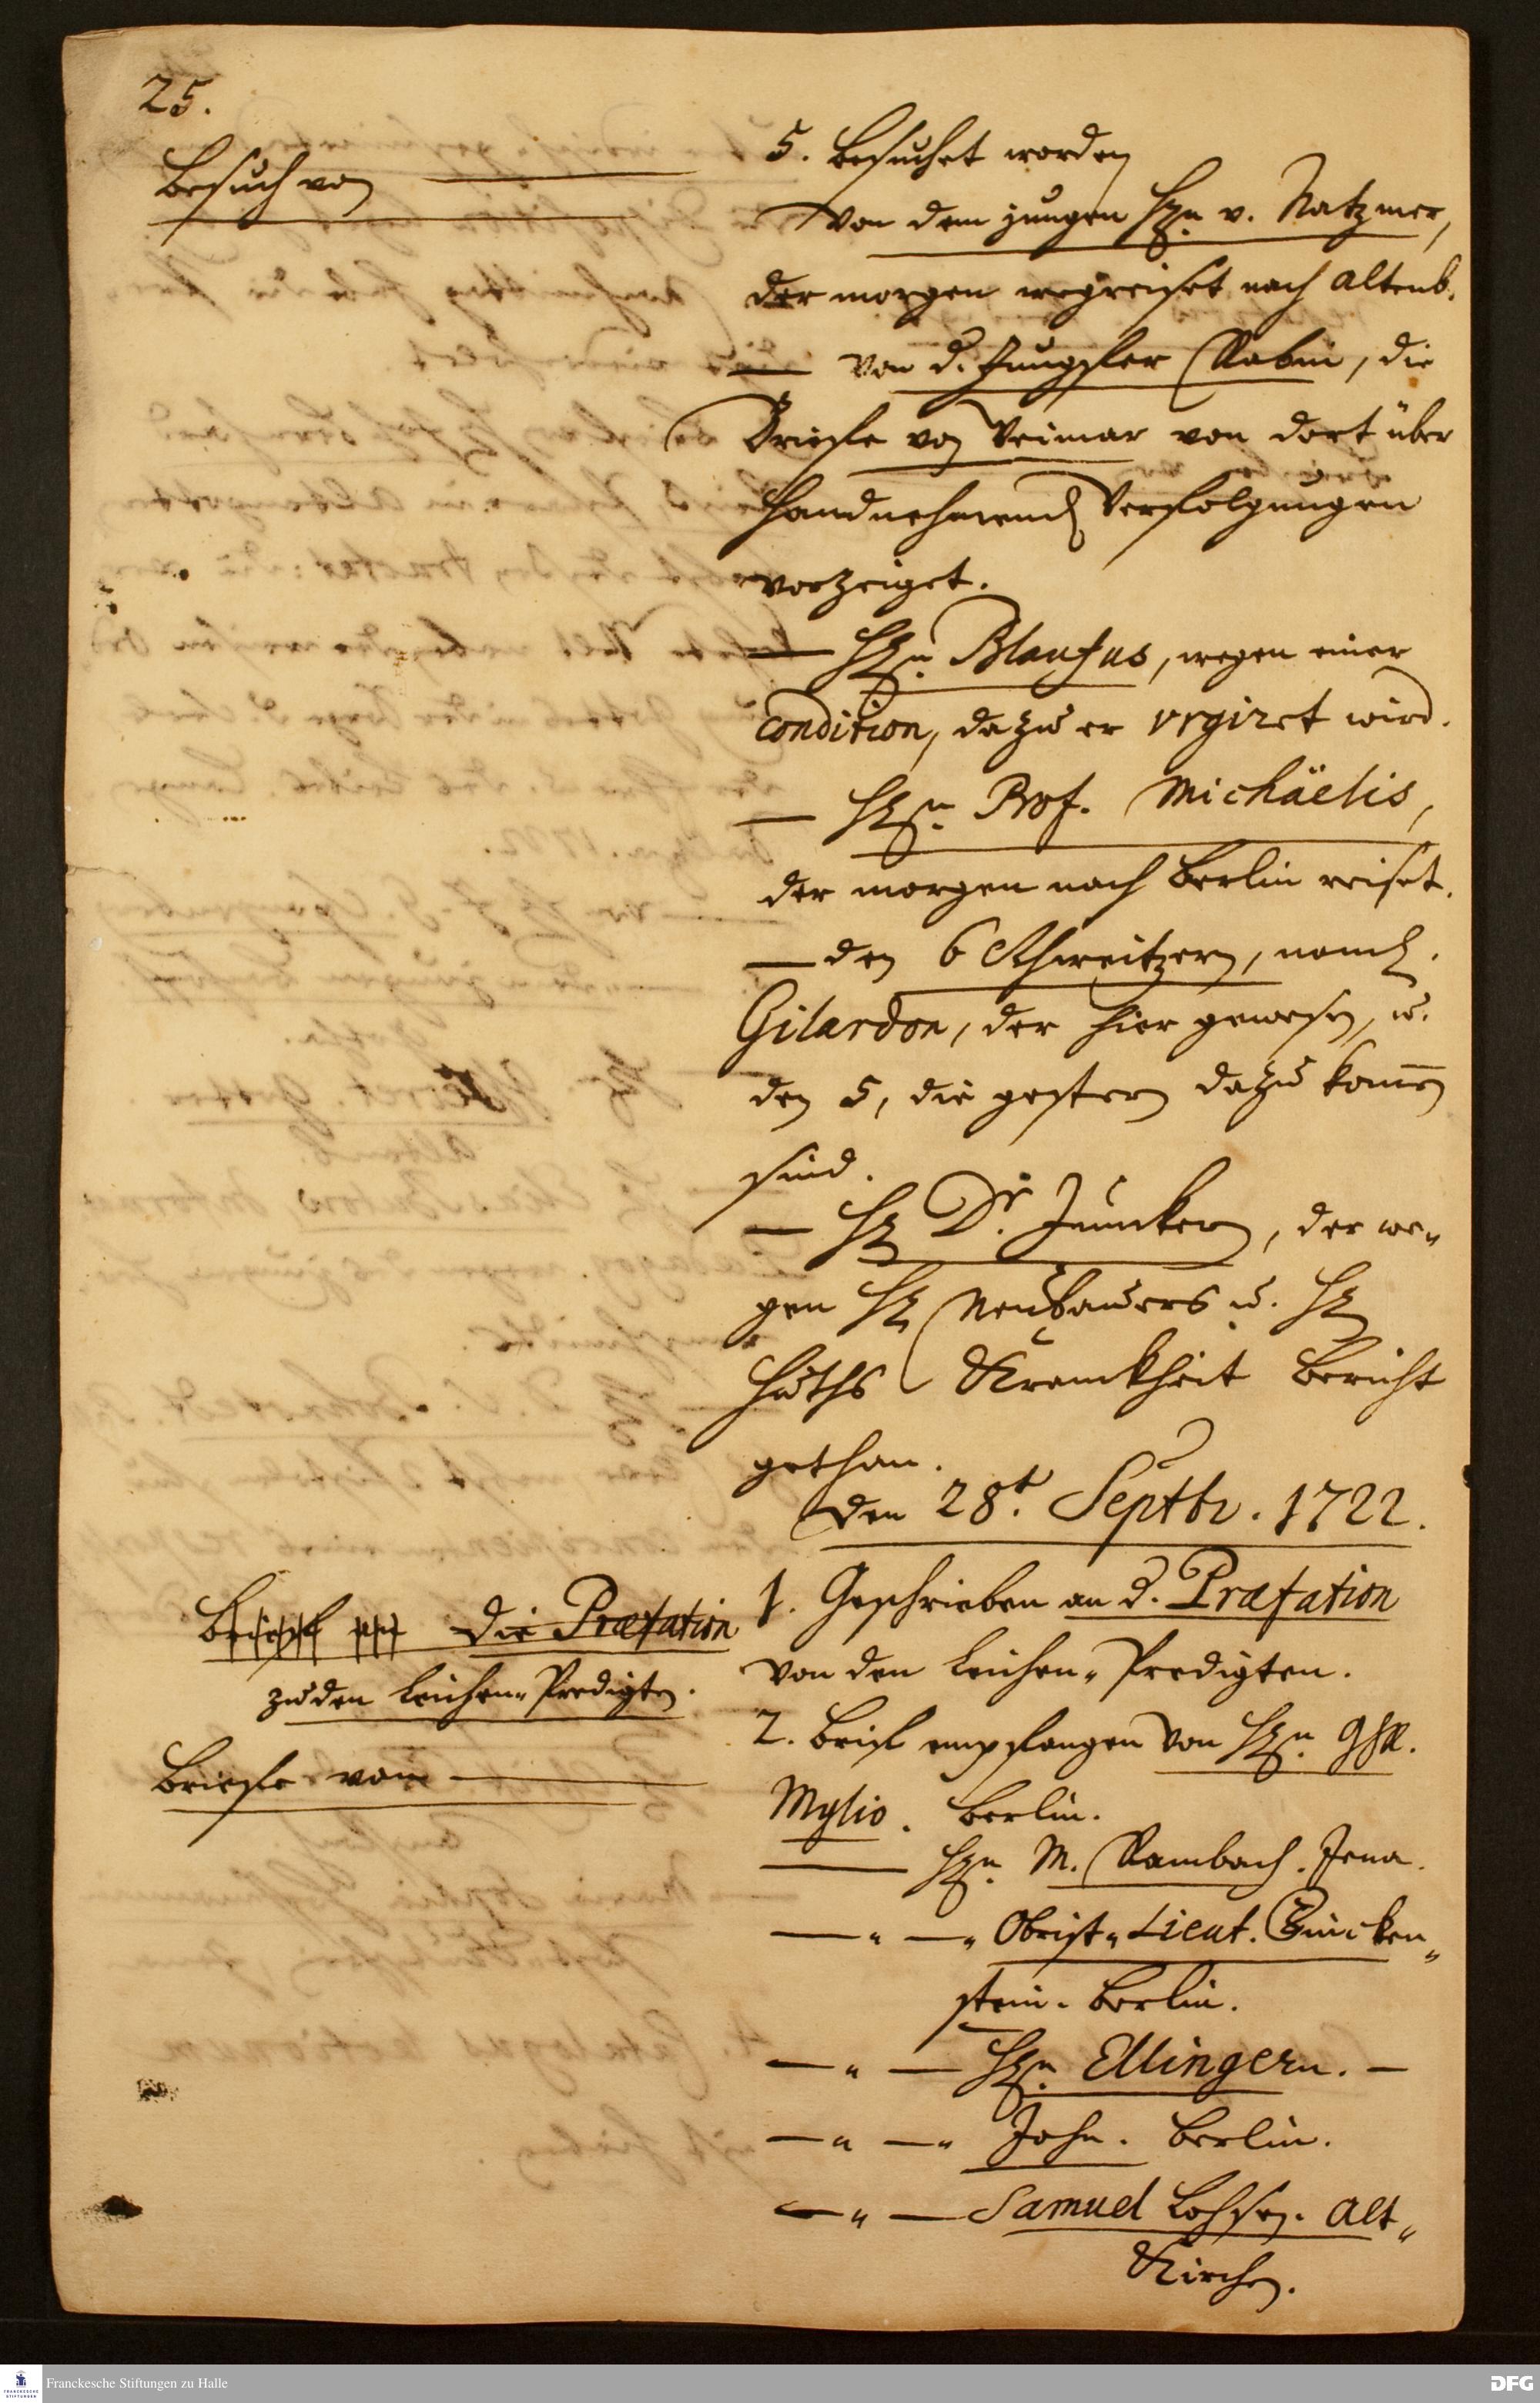 25.
Besuch von
5. besuchet worden
Von dem jungen Hrn. v. Natzmer,
der morgen wegreiset nach Altenb.
— Von d. Jungfer Rabin, die
Brieffe von Weimar von dort über
Handnehmend Verfolgungen
vorzeiget.
— Hrn. Blaufus, wegen einer
Condition, dazu er urgiret wird.
— Hrn. Prof. Michäelis,
der morgen nach Berlin reiset.
— den 6 Schweitzern, neml.
Gilardon, der hier gewesen, u.
den 5, die gestern dazu komen
sind.
— Hr Dr. Junckern, der we-
gen Hr Neubauers u. Hr
Huths Kranckheit Bericht
gethan.
Den 28t. Septbr. 1722.
Brieff an die Præfation
zu den Leichen-Predigten.
1. Geschrieben an d. Præfation
von den Leichen-Predigten.
Brieffe von
2. Brief empfangen Von Hrn.
Mylio. Berlin.
— Hrn. M. Rambach. Jena.
— " — " Obrist-Lieut. Finicken-
stein. Berlin.
— " — Hrn. Ellingern. —
— " — " John. Berlin.
— " — Samuel Lohsen. Alt-
Kirchen.
Franckesche Stiftungen zu Halle
DFG